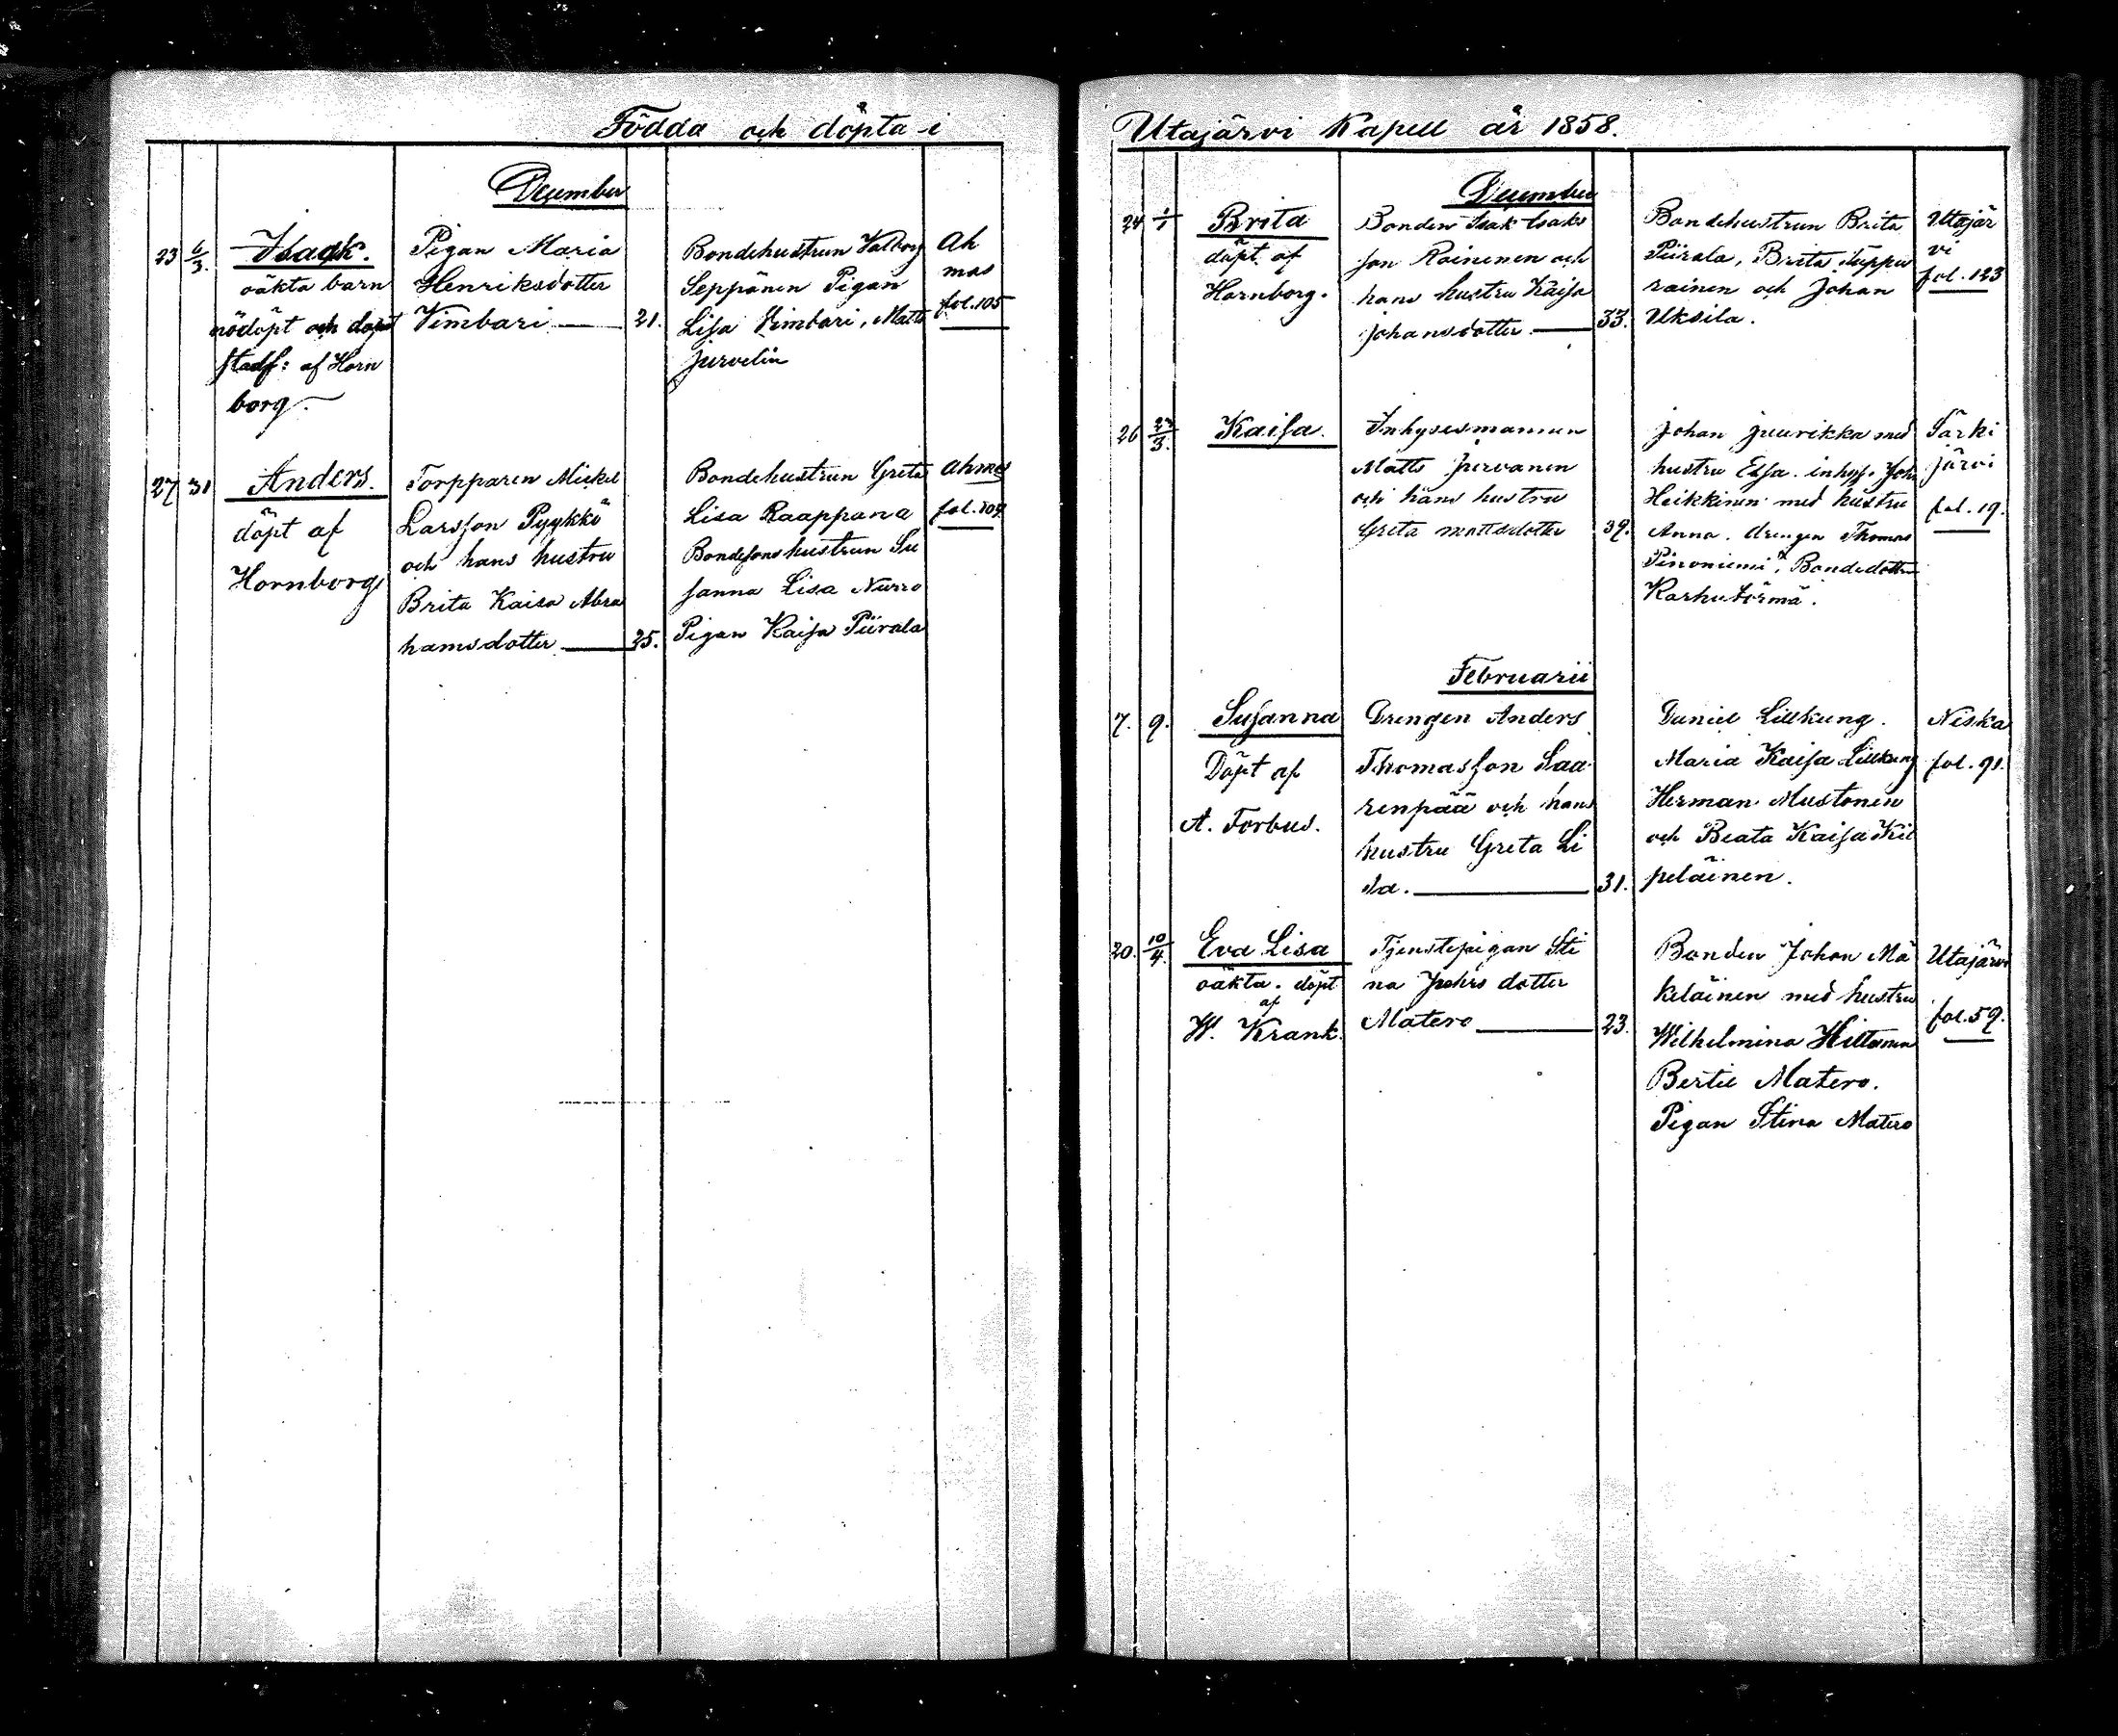 Födda och döpta i
December
23 6/3. Isaak. Pigan Maria Bondehustrun Valborg Ah
oäkta barn Henriksdotter Seppänen Pigan mas
nödöpt och dopet Vimbari 21. Lisa Vimbari, Matts fol. 105
stadf: af Horn Jurvelin
borg.
27 31 Anders. Torpparen Mickel Bondehustrun Greta Ahmas
döpt af Larsson Pyykkö Lisa Raappana fol. 109.
Hornborg och hans hustru Bondesons hustrun Su
Brita Kaisa Abra sanna Lisa Nurro
hamsdotter 25. Pigan Kaisa Piirala
Utajärvi Kapell år 1858.
December
24 1/1 Brita Bonden Isak Isaks Bondehustrun Brita Utajär
döpt af son Roininen och Piirala, Brita Tuppu vi
Hornborg. hans hustru Kaisa rainen och Johan fol. 123
Johansdotter 33. Uksila.
26 27/3. Kaisa. Inhysesmannen Johan Juurikka med Särki
Matts Jurvanen hustru Elsa. inhys. Joh järvi
och hans hustru Heikkinen med hustru fol. 19.
Greta Mattsdotter 39. Anna. drengen Thomas
Pinoniemi, Bondedottr
Karhutörmä.
Februarii
7. 9. Susanna Drengen Anders Daniel Lillkung. Niska
Döpt af Thomasson Saa Maria Kaisa Lillkung fol. 91.
A. Forbus. renpää och hans Herman Mustonen
hustru Greta Li och Beata Kaisa Kil
sa. 31. peläinen.
20. 10/4. Eva Lisa Tjenstepigan Sti Bonden Johan Mä Utajärvi
oäkta. döpt na Johs dotter keläinen med hustru fol. 59.
af
W. Krank. Matero 23. Wilhelmina Hiltunen
Bertil Matero.
Pigan Stina Matero